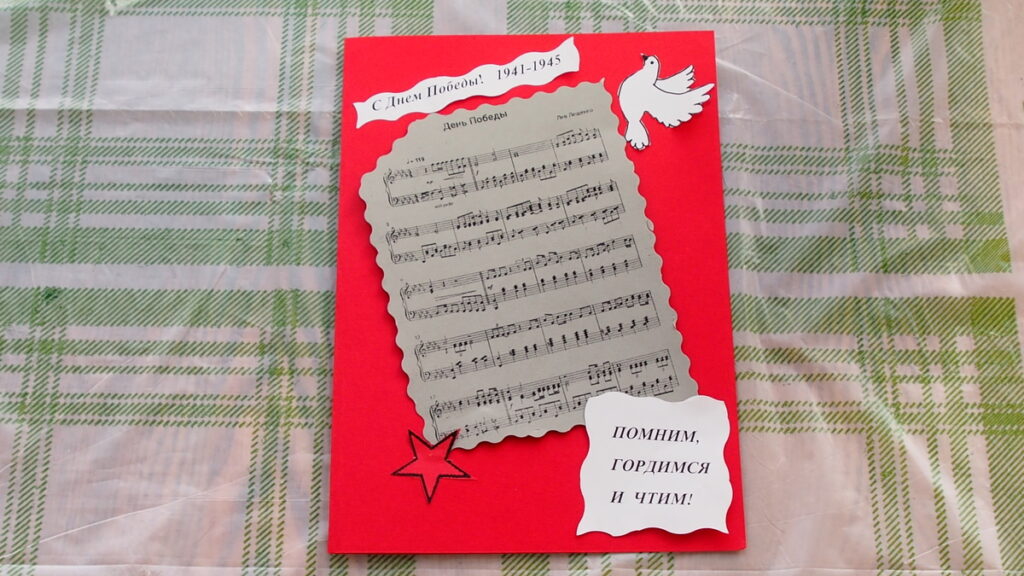 С Днем Победы! 1941-1945
День Победы
Лев Лещенко
♩ = 119
ПОМНИМ,
ГОРДИМСЯ
И ЧТИМ!